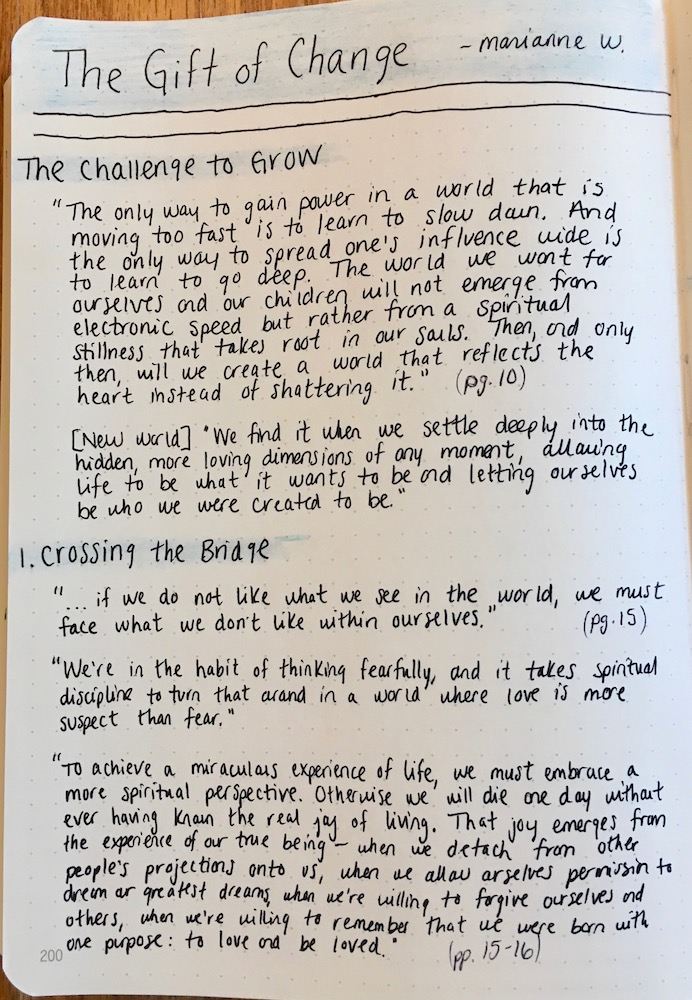 The Gift of Change - marianne w.
The Challenge to Grow
"The only way to gain power in a world that is
moving too fast is to learn to slow down. And
the only way to spread one's influence wide is
to learn to go deep. The world we want for
ourselves and our children will not emerge from
electronic speed but rather from a spiritual
stillness that takes root in our souls. Then, and only
then, will we create a world that reflects the
heart instead of shattering it." (pg. 10)
[New world] "We find it when we settle deeply into the
hidden, more loving dimensions of any moment, allowing
life to be what it wants to be and letting ourselves
be who we were created to be."
1. Crossing the Bridge
"... if we do not like what we see in the world, we must
face what we don't like within ourselves." (pg. 15)
"We're in the habit of thinking fearfully, and it takes spiritual
discipline to turn that around in a world where love is more
suspect than fear."
"To achieve a miraculous experience of life, we must embrace a
more spiritual perspective. Otherwise we will die one day without
ever having known the real joy of living. That joy emerges from
the experience of our true being - when we detach from other
people's projections onto us, when we allow ourselves permission to
dream our greatest dreams, when we're willing to forgive ourselves and
others, when we're willing to remember that we were born with
one purpose: to love and be loved." (pp. 15-16)
200